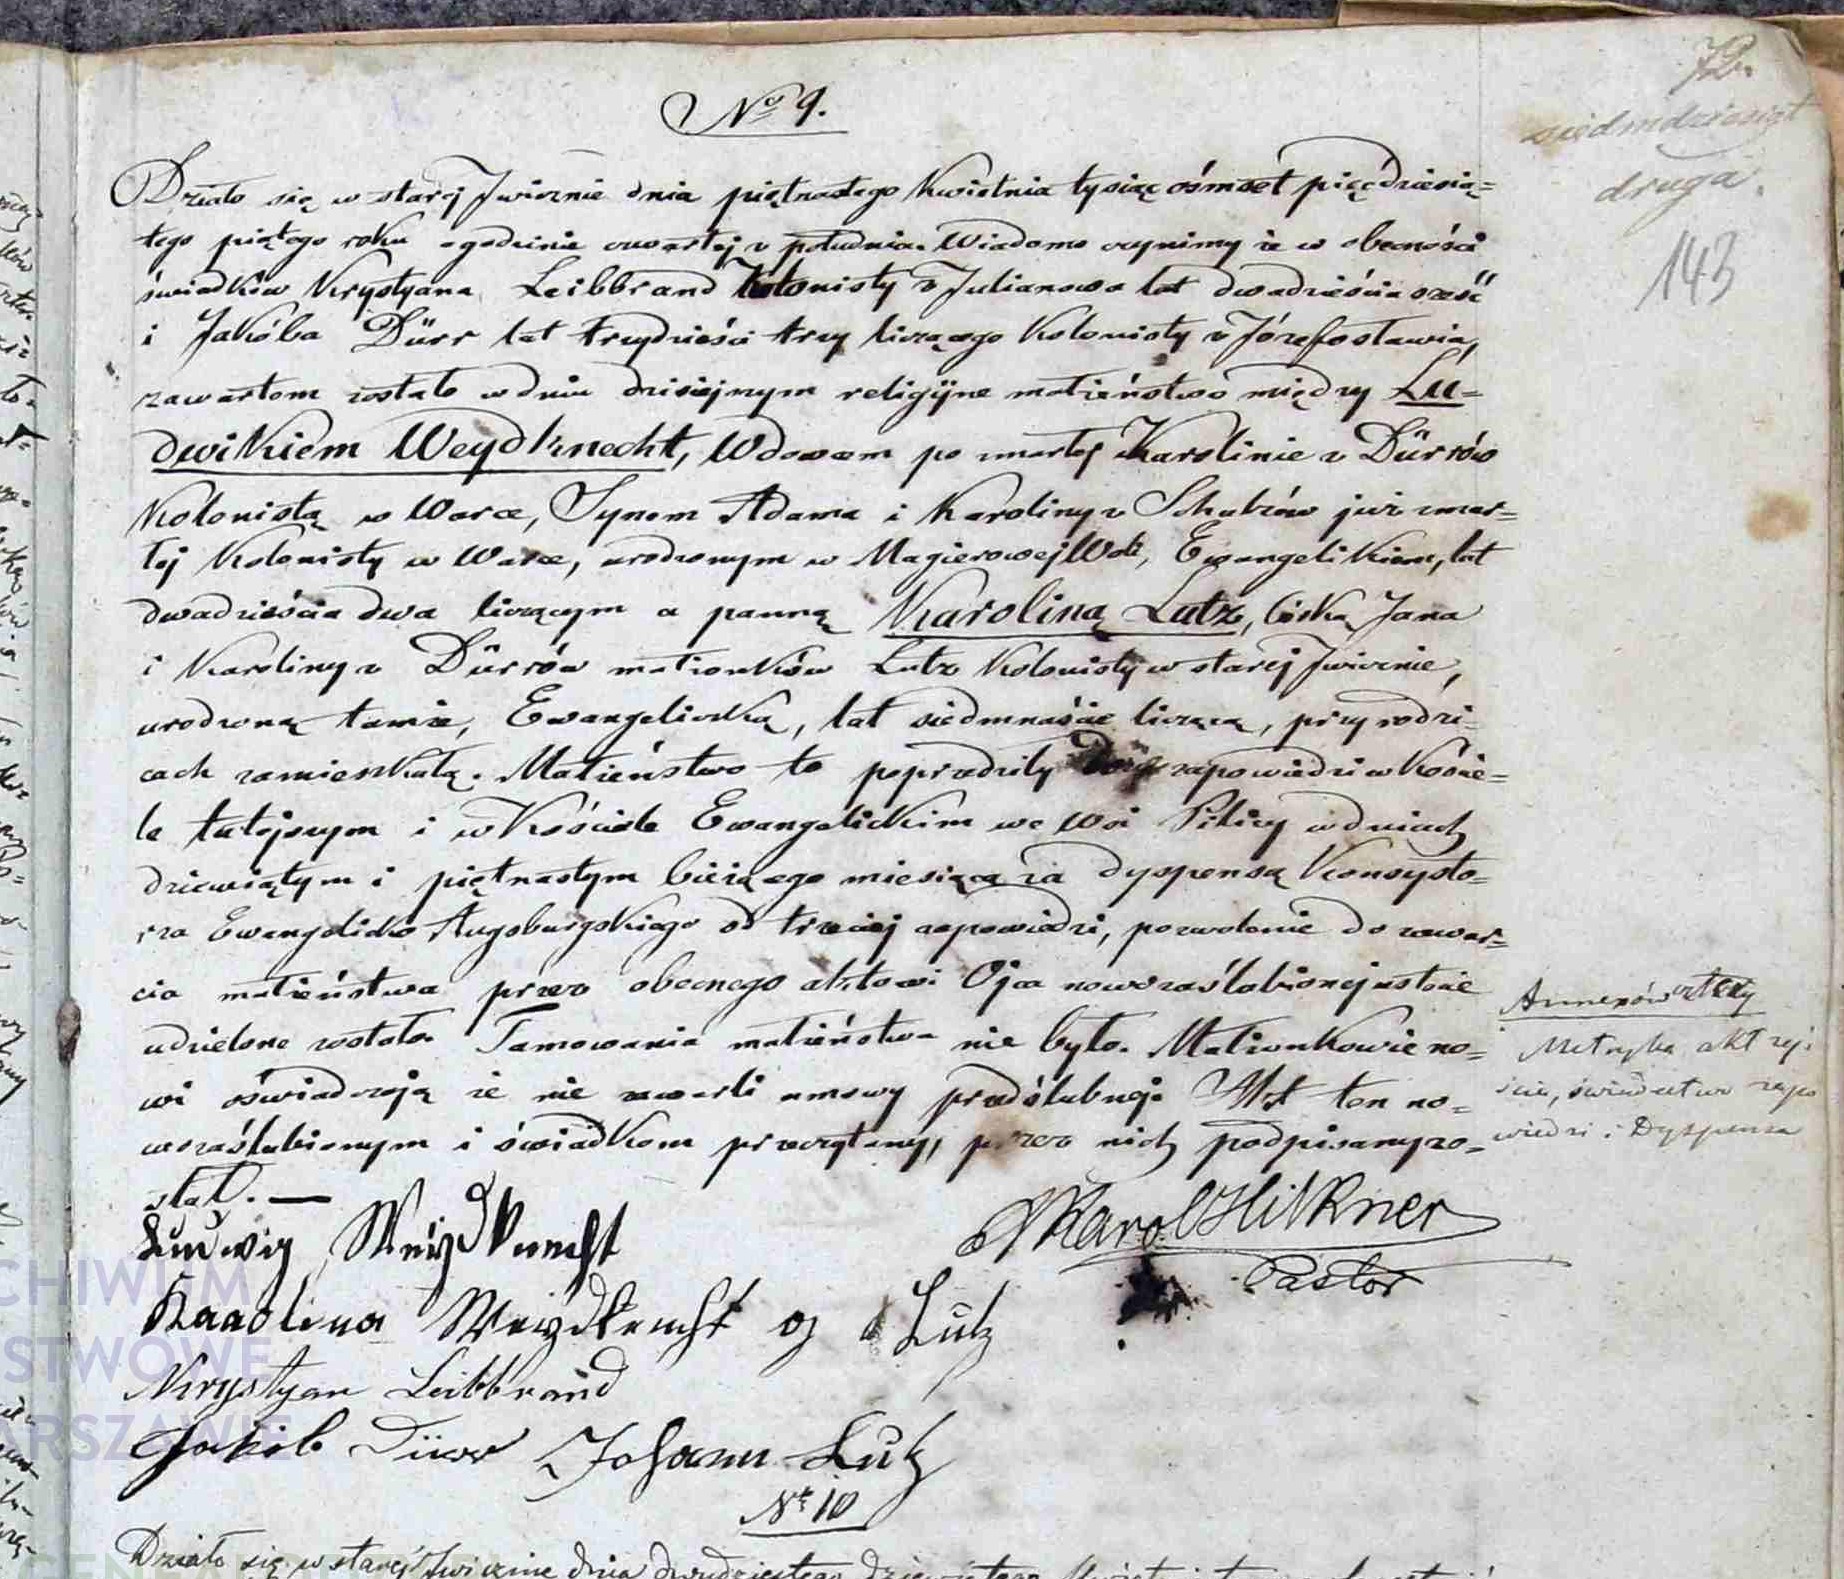 72.
siedmdziesiąt
druga.
143
No 9.
Działo się w starej Iwicznie dnia piętnastego Kwietnia tysiąc ośmset pięćdziesią=
tego piątego roku o godzinie czwartej z południa. Wiadomo czynimy że w obecności
świadków Krystyana Leibbrand Kolonisty z Julianowa lat dwadzieścia sześć
i Jakóba Dürr lat trzydzieści trzy liczącego Kolonisty z Józefosławia,
zawartem zostało w dniu dzisiejszym religijne małżeństwo między Lu=
dwikiem Weydknecht, Wdowcem po zmarłej Karolinie z Dürrów
Kolonistą w Warce, Synem Adama i Karoliny z Schulzów już zmar=
łej Kolonisty w Warce, urodzonym w Magierowej Woli, Ewangelikiem, lat
dwadzieścia dwa liczącym a panną Karoliną Lutz, córką Jana
i Karoliny z Dürrów małżonków Lutz Kolonisty w starej Iwicznie,
urodzoną tamże, Ewangeliczką, lat siedmnaście liczącą, przy rodzi=
cach zamieszkałą. Małżeństwo to poprzedziły zapowiedzi w Koście=
le tutejszym i w Kościele Ewangelickim we Wsi Pilicy w dniach
dziewiątym i piętnastym bieżącego miesiąca za dyspensą Konsysto=
rza Ewangelicko Augsburgskiego od trzeciej zapowiedzi, pozwolenie do zawar=
cia małżeństwa przez obecnego aktowi Ojca nowozaślubionej ustnie
udzielone zostało. Tamowania małżeństwa nie było. Małżonkowie no=
wi oświadczają że nie zawarli umowy przedślubnej. Akt ten no=
wozaślubionym i świadkom przeczytany, przez nich podpisany zo=
stał. —
Annexów cztery
Metryka akt zej
ścia, świadectwo zapo
wiedzi i Dyspensa
Ludwig Weydknecht
Karol Hilkner
Pastor
Karolina Weydknecht Lutz
Krystyan Leibbrand
Jakób Dürr Johann Lutz
No 10
Działo się w starej Iwicznie dnia dwudziestego
ARCHIWUM
PAŃSTWOWE
W WARSZAWIE